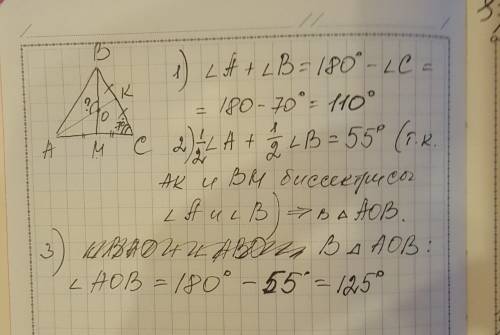 B
K
?
O
70°
A
M
C
1) ∠A + ∠B = 180° - ∠C =
= 180 - 70° = 110°
2) 1/2 ∠A + 1/2 ∠B = 55° (т.к.
AK и BM биссектрисы
∠A и ∠B) ⇒ в △ AOB.
3) В △ AOB:
∠ AOB = 180° - 55° = 125°